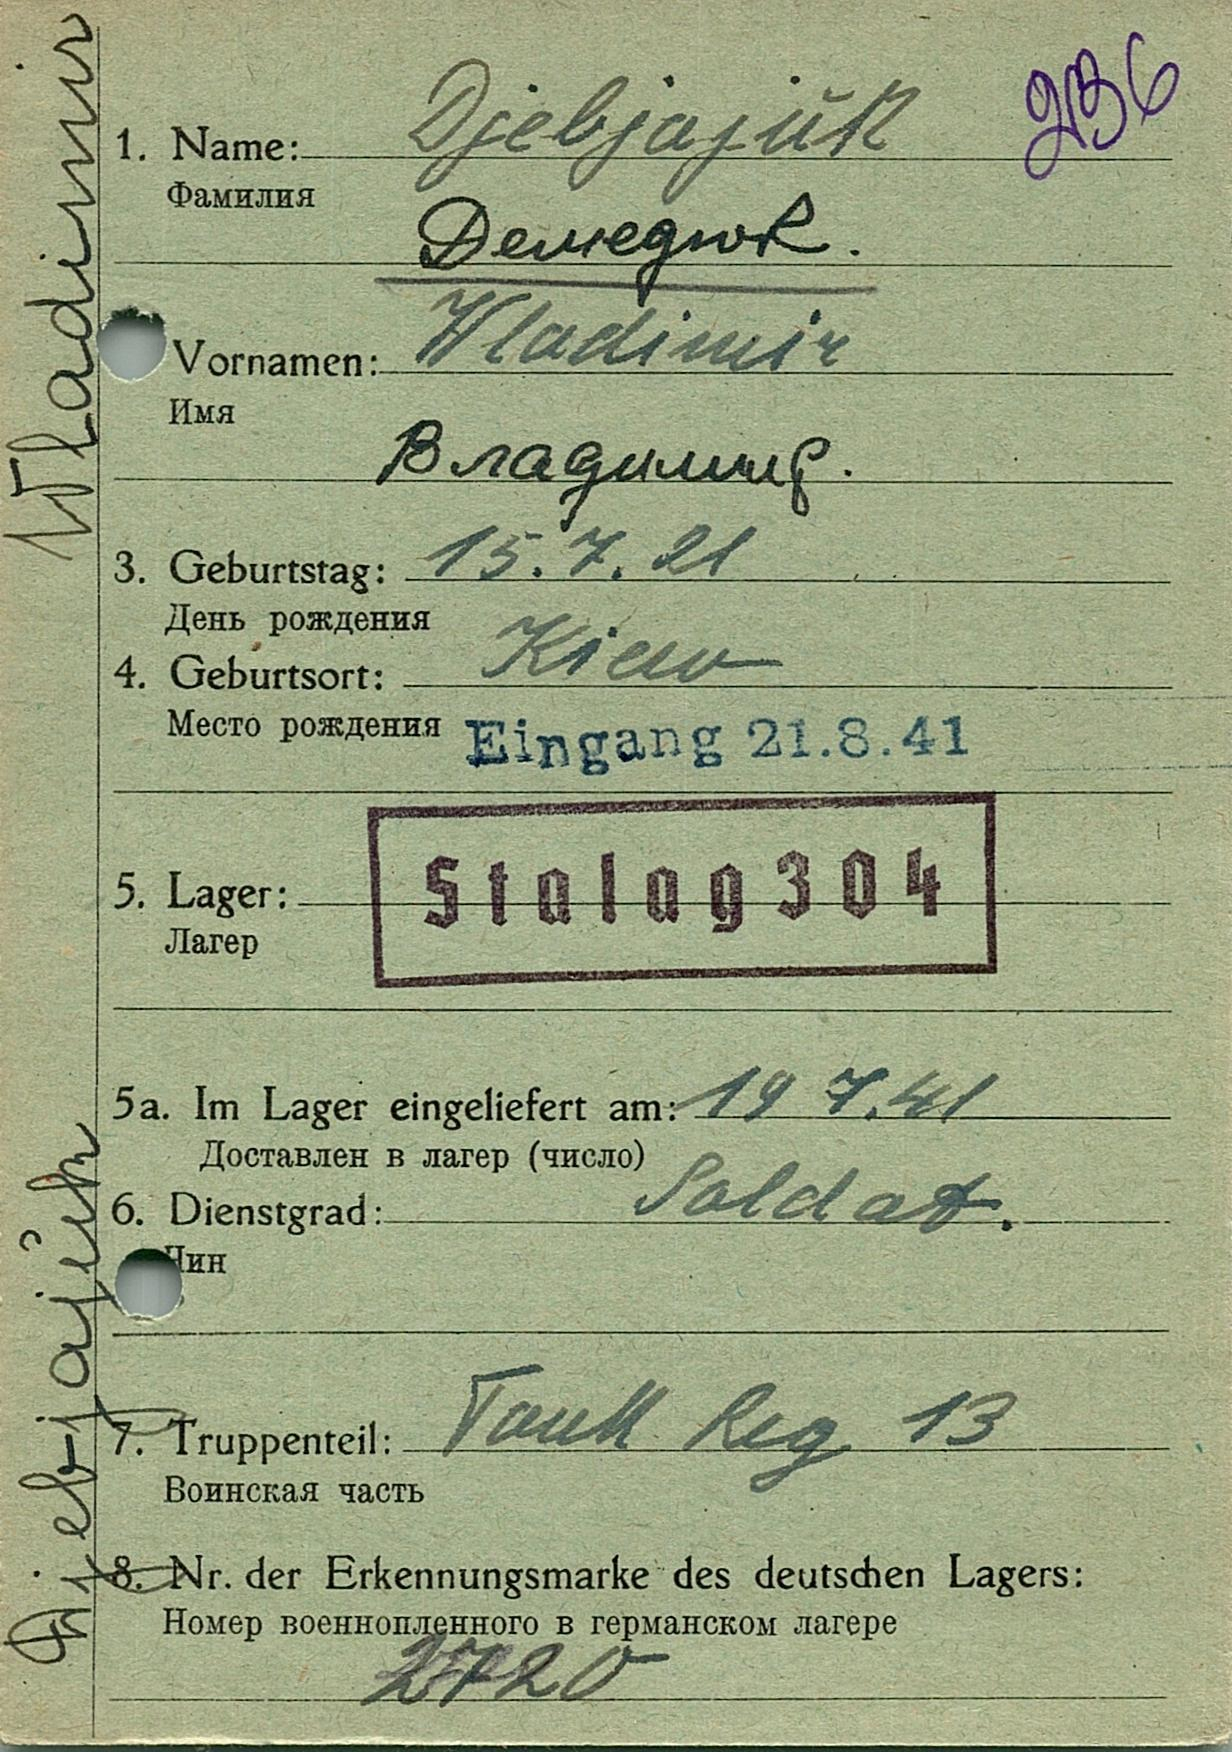 236
1. Name: Djebjajŭk
Фамилия
Демедюк.
Vornamen: Wladimir
Имя
Владимир.
3. Geburtstag: 15.7.21
День рождения
4. Geburtsort: Kiew
Место рождения
Eingang 21.8.41
5. Lager: Stalag 304
Лагер
5a. Im Lager eingeliefert am: 19 7.41
Доставлен в лагер (число)
6. Dienstgrad: Soldat.
Чин
7. Truppenteil: Tank Reg 13
Воинская часть
8. Nr. der Erkennungsmarke des deutschen Lagers:
Номер военнопленного в германском лагере
2720
Djebjajŭk Wladimir